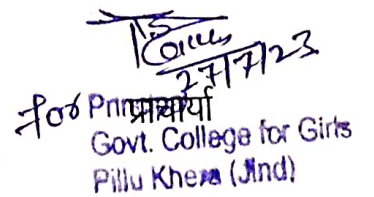 27/7/23
for Principal प्राचार्या
Govt. College for Girls
Pillu Khera (Jind)